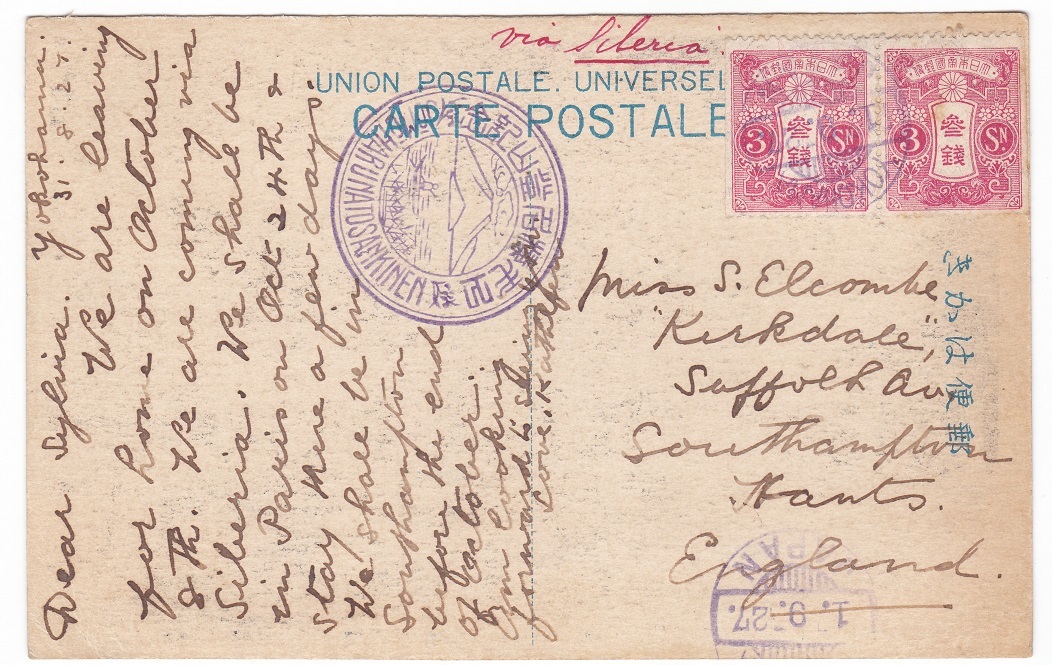 via Siberia.
UNION POSTALE. UNIVERSEL
CARTE POSTALE
大日本帝國郵便
大日本帝國郵便
3 參錢 SN
3 參錢 SN
JAPAN
1.9.27.
きかは便郵
Miss S. Elcombe
"Kirkdale",
Suffolk Av
Southampton
Hants.
England.
Yokohama.
31.8.27.
Dear Sylvia.
We are leaving
for home on October
8th. We are coming via
Siberia. We shall be
in Paris on Oct 24th &
stay there a few days.
We shall be in
Southampton
before the end
of October.
Am looking
forward to seeing you
love. Kathleen